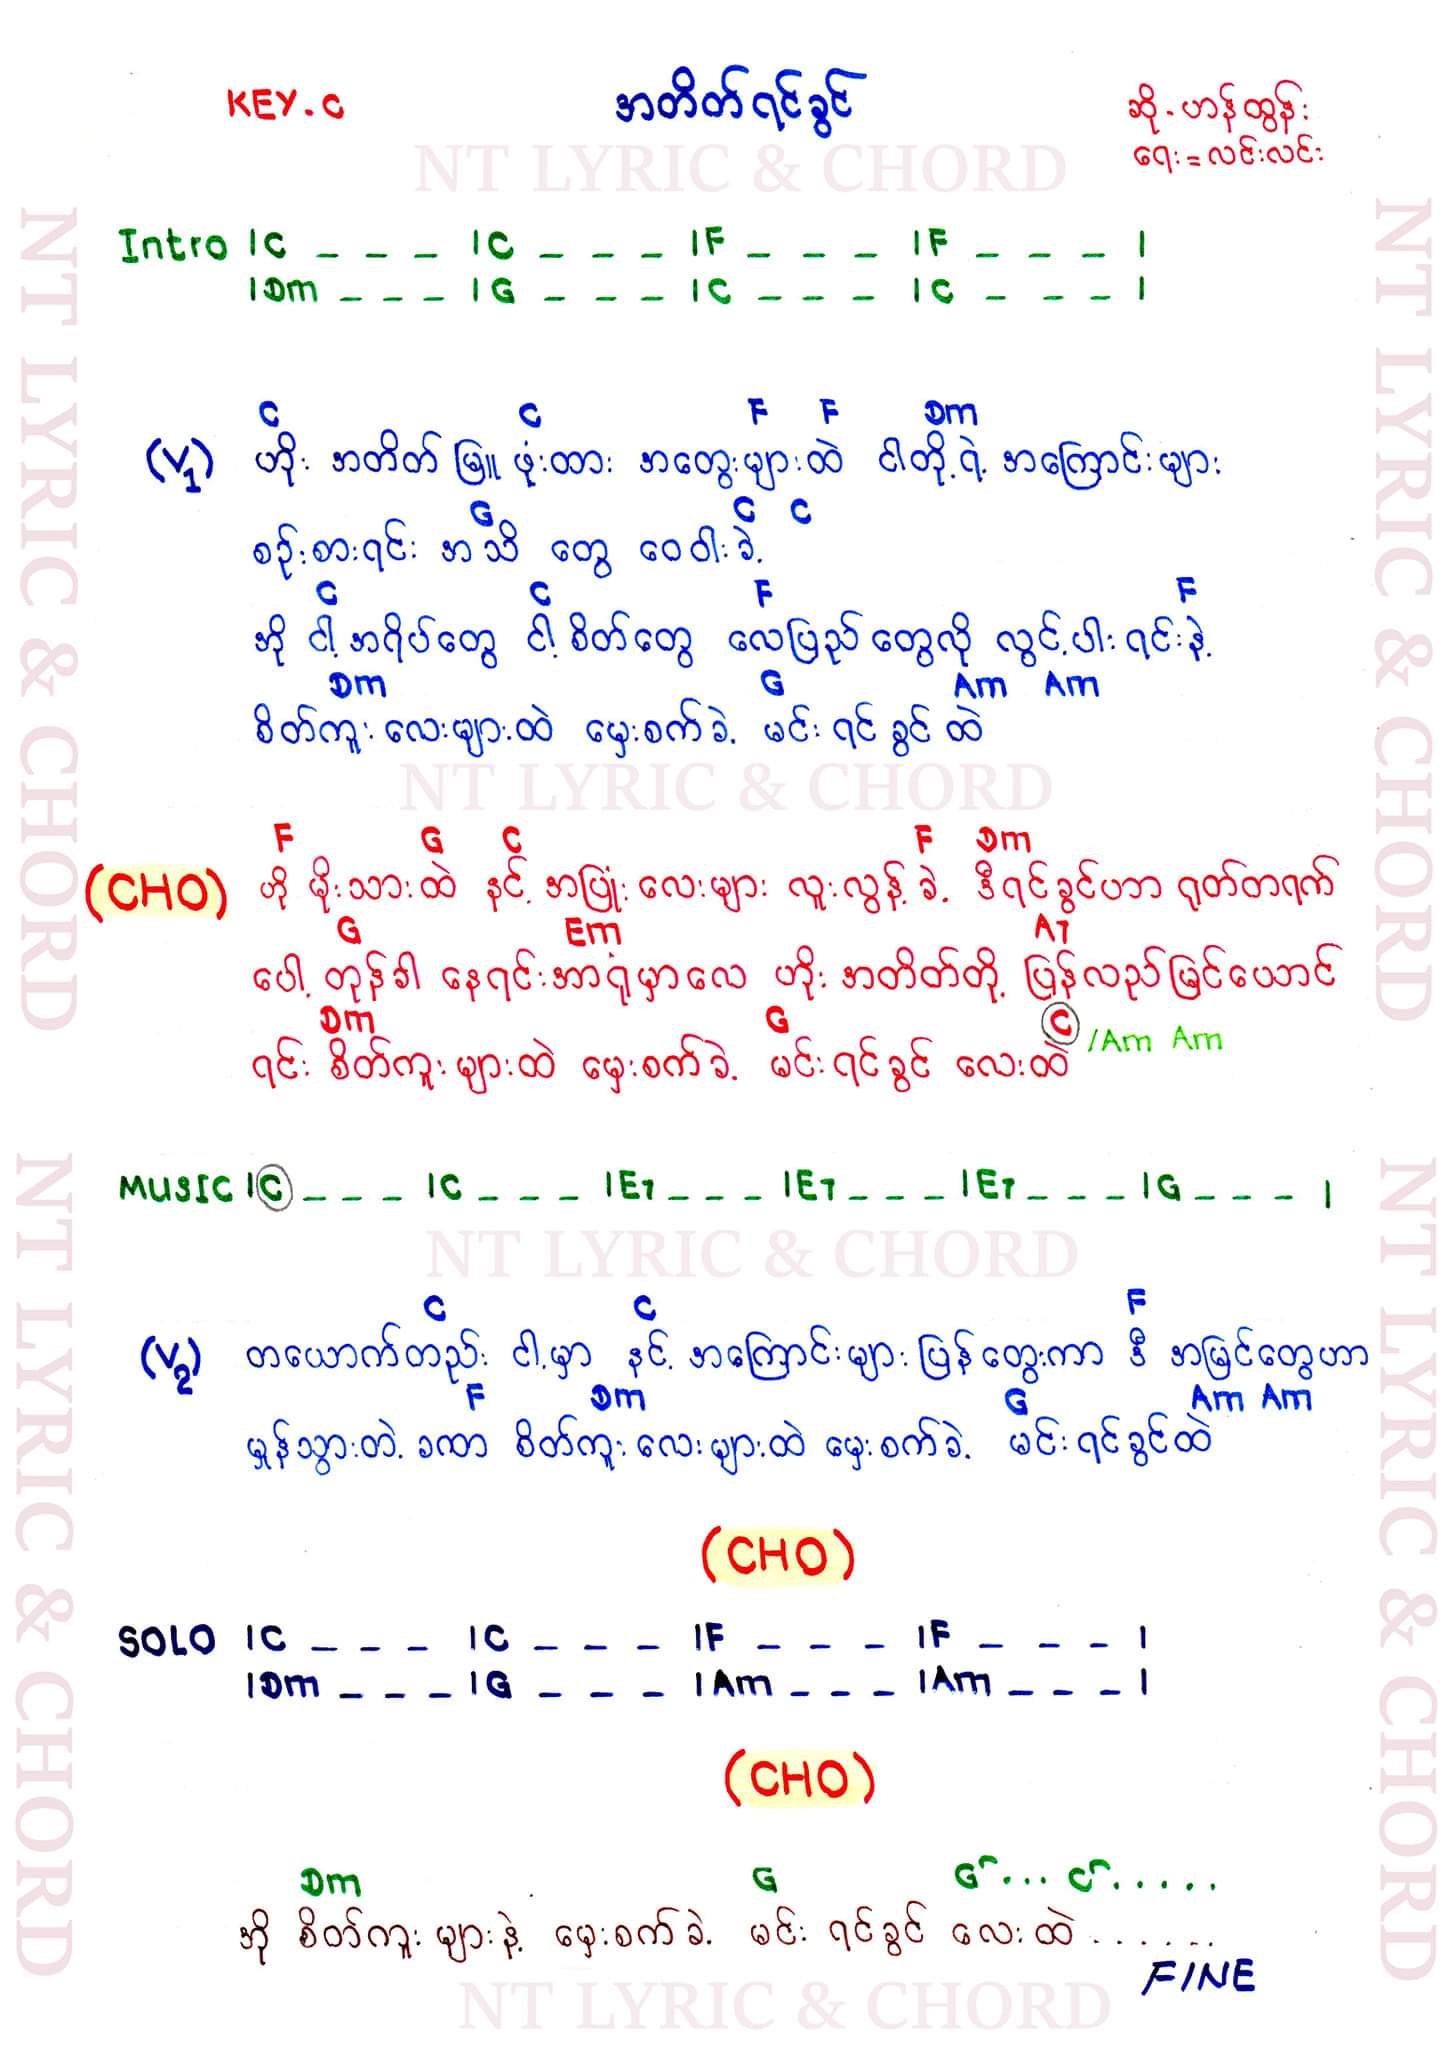 KEY.C
အတိတ်ရင်ခွင်
ဆို-ဟန်ထွန်း
ရေး=လင်းလင်း
NT LYRIC & CHORD
Intro |C _ _ _ |C _ _ _ |F _ _ _ |F _ _ _ |
|Dm _ _ _ |G _ _ _ |C _ _ _ |C _ _ _ |
C C F F Dm
(V1) ဟိုး အတိတ် မြူ ဖုံးထား အတွေးများထဲ ငါတို့ရဲ့ အကြောင်းများ
G C C
စဉ်းစားရင်း အသိ တွေ ဝေဝါးခဲ့
C C F F
အို ငါ့အရိပ်တွေ ငါ့စိတ်တွေ လေပြည်တွေလို လွင့်ပါးရင်းနဲ့
Dm G Am Am
စိတ်ကူးလေးများထဲ မှေးစက်ခဲ့ မင်းရင်ခွင်ထဲ
NT LYRIC & CHORD
F G C F Dm
(CHO) ဟို မိုးသားထဲ နင့်အပြုံးလေးများ လူးလွန့်ခဲ့ ဒီရင်ခွင်ဟာ ရုတ်တရက်
G Em A7
ပေါ့ တုန်ခါ နေရင်းအာရုံမှာလေ ဟိုးအတိတ်တို့ ပြန်လည်မြင်ယောင်
Dm G C /Am Am
ရင်း စိတ်ကူးများထဲ မှေးစက်ခဲ့ မင်းရင်ခွင် လေးထဲ
MUSIC |C _ _ _ |C _ _ _ |E7 _ _ _ |E7 _ _ _ |E7 _ _ _ |G _ _ _ |
NT LYRIC & CHORD
C C F
(V2) တယောက်တည်း ငါ့မှာ နင့်အကြောင်းများ ပြန်တွေးကာ ဒီ အမြင်တွေဟာ
F Dm G Am Am
မှုန်သွားတဲ့ခဏ စိတ်ကူးလေးများထဲ မှေးစက်ခဲ့ မင်းရင်ခွင်ထဲ
(CHO)
SOLO |C _ _ _ |C _ _ _ |F _ _ _ |F _ _ _ |
|Dm _ _ _ |G _ _ _ |Am _ _ _ |Am _ _ _ |
(CHO)
Dm G G ... C .....
အို စိတ်ကူးများနဲ့ မှေးစက်ခဲ့ မင်း ရင်ခွင် လေးထဲ ......
FINE
NT LYRIC & CHORD
NT LYRIC & CHORD
NT LYRIC & CHORD
NT LYRIC & CHORD
NT LYRIC & CHORD